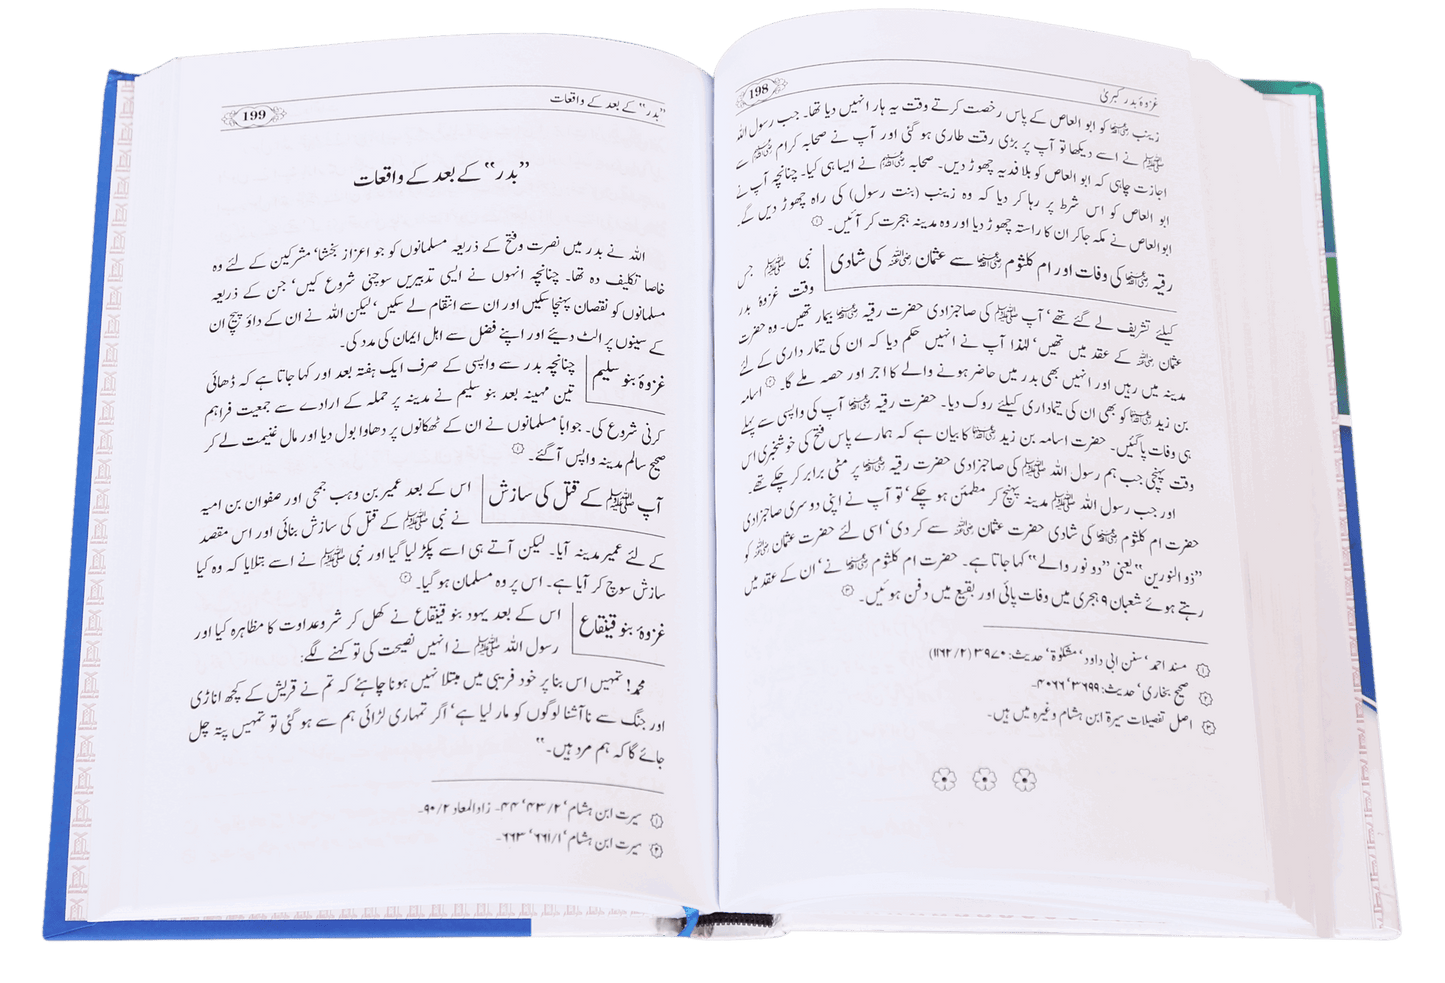 غزوۂ بدر کبریٰ
198
زینب رضی اللہ عنہا کو ابو العاص کے پاس رخصت کرتے وقت یہ ہار انہیں دیا تھا۔ جب رسول اللہ
ﷺ نے اسے دیکھا تو آپ پر بڑی رقت طاری ہو گئی اور آپ نے صحابہ کرام رضی اللہ عنہم سے
اجازت چاہی کہ ابو العاص کو بلا فدیہ چھوڑ دیں۔ صحابہ رضی اللہ عنہم نے ایسا ہی کیا۔ چنانچہ آپ نے
ابو العاص کو اس شرط پر رہا کر دیا کہ وہ زینب (بنت رسول) کی راہ چھوڑ دیں گے۔
ابوالعاص نے مکہ جاکر ان کا راستہ چھوڑ دیا اور وہ مدینہ ہجرت کر آئیں۔ ①
رقیہ رضی اللہ عنہا کی وفات اور ام کلثوم رضی اللہ عنہا سے عثمان رضی اللہ عنہ کی شادی
نبی ﷺ جس
وقت غزوۂ بدر
کیلئے تشریف لے گئے تھے‘ آپ ﷺ کی صاحبزادی حضرت رقیہ رضی اللہ عنہا بیمار تھیں۔ وہ حضرت
عثمان رضی اللہ عنہ کے عقد میں تھیں‘ لہٰذا آپ نے انہیں حکم دیا کہ ان کی تیمار داری کے لئے
مدینہ میں رہیں اور انہیں بھی بدر میں حاضر ہونے والے کا اجر اور حصہ ملے گا۔ ② اسامہ
بن زید رضی اللہ عنہ کو بھی ان کی تیماداری کیلئے روک دیا۔ حضرت رقیہ رضی اللہ عنہا آپ کی واپسی سے پہلے
ہی وفات پاگئیں۔ حضرت اسامہ بن زید رضی اللہ عنہ کا بیان ہے کہ ہمارے پاس فتح کی خوشخبری اس
وقت پہنچی جب ہم رسول اللہ ﷺ کی صاحبزادی حضرت رقیہ رضی اللہ عنہا پر مٹی برابر کر چکے تھے۔
اور جب رسول اللہ ﷺ مدینہ پہنچ کر مطمئن ہو چکے‘ تو آپ نے اپنی دوسری صاحبزادی
حضرت ام کلثوم رضی اللہ عنہا کی شادی حضرت عثمان رضی اللہ عنہ سے کر دی‘ اسی لئے حضرت عثمان رضی اللہ عنہ کو
”ذو النورین“ یعنی ”دو نور والے“ کہا جاتا ہے۔ حضرت ام کلثوم رضی اللہ عنہا نے‘ ان کے عقد میں
رہتے ہوئے شعبان ۹ ہجری میں وفات پائی اور بقیع میں دفن ہوئیں۔ ③
① مسند احمد‘ سنن ابی داود‘ مشکوٰۃ‘ حدیث: ۳۹۷۰ (۱۱۶۲/۲)
② صحیح بخاری‘ حدیث: ۳۶۹۹‘ ۴۰۶۶۔
③ اصل تفصیلات سیرۃ ابن ہشام وغیرہ میں ہیں۔
”بدر“ کے بعد کے واقعات
199
”بدر“ کے بعد کے واقعات
اللہ نے بدر میں نصرت وفتح کے ذریعہ مسلمانوں کو جو اعزاز بخشا‘ مشرکین کے لئے وہ
خاصا تکلیف دہ تھا۔ چنانچہ انہوں نے ایسی تدبیریں سوچنی شروع کیں‘ جن کے ذریعہ
مسلمانوں کو نقصان پہنچا سکیں اور ان سے انتقام لے سکیں‘ لیکن اللہ نے ان کے داؤ پیچ ان
کے سینوں پر الٹ دیئے اور اپنے فضل سے اہل ایمان کی مدد کی۔
غزوۂ بنو سلیم
چنانچہ بدر سے واپسی کے صرف ایک ہفتہ بعد اور کہا جاتا ہے کہ ڈھائی
تین مہینہ بعد بنو سلیم نے مدینہ پر حملہ کے ارادے سے جمعیت فراہم
کرنی شروع کی۔ جواباً مسلمانوں نے ان کے ٹھکانوں پر دھاوا بول دیا اور مال غنیمت لے کر
صحیح سالم مدینہ واپس آگئے۔ ①
آپ ﷺ کے قتل کی سازش
اس کے بعد عمیر بن وہب جمحی اور صفوان بن امیہ
نے نبی ﷺ کے قتل کی سازش بنائی اور اس مقصد
کے لئے عمیر مدینہ آیا۔ لیکن آتے ہی اسے پکڑ لیا گیا اور نبی ﷺ نے اسے بتلایا کہ وہ کیا
سازش سوچ کر آیا ہے۔ اس پر وہ مسلمان ہو گیا۔ ②
غزوۂ بنو قینقاع
اس کے بعد یہود بنو قینقاع نے کھل کر شروعداوت کا مظاہرہ کیا اور
رسول اللہ ﷺ نے انہیں نصیحت کی تو کہنے لگے:
محمد! تمہیں اس بنا پر خود فریبی میں مبتلا نہیں ہونا چاہئے کہ تم نے قریش کے کچھ اناڑی
اور جنگ سے ناآشنا لوگوں کو مار لیا ہے‘ اگر تمہاری لڑائی ہم سے ہو گئی تو تمہیں پتہ چل
جائے گا کہ ہم مرد ہیں۔“
① سیرت ابن ہشام‘ ۴۳/۲‘ ۴۴۔ زادالمعاد ۹۰/۲۔
② سیرت ابن ہشام‘ ۶۶۱/۱‘ ۶۶۳۔